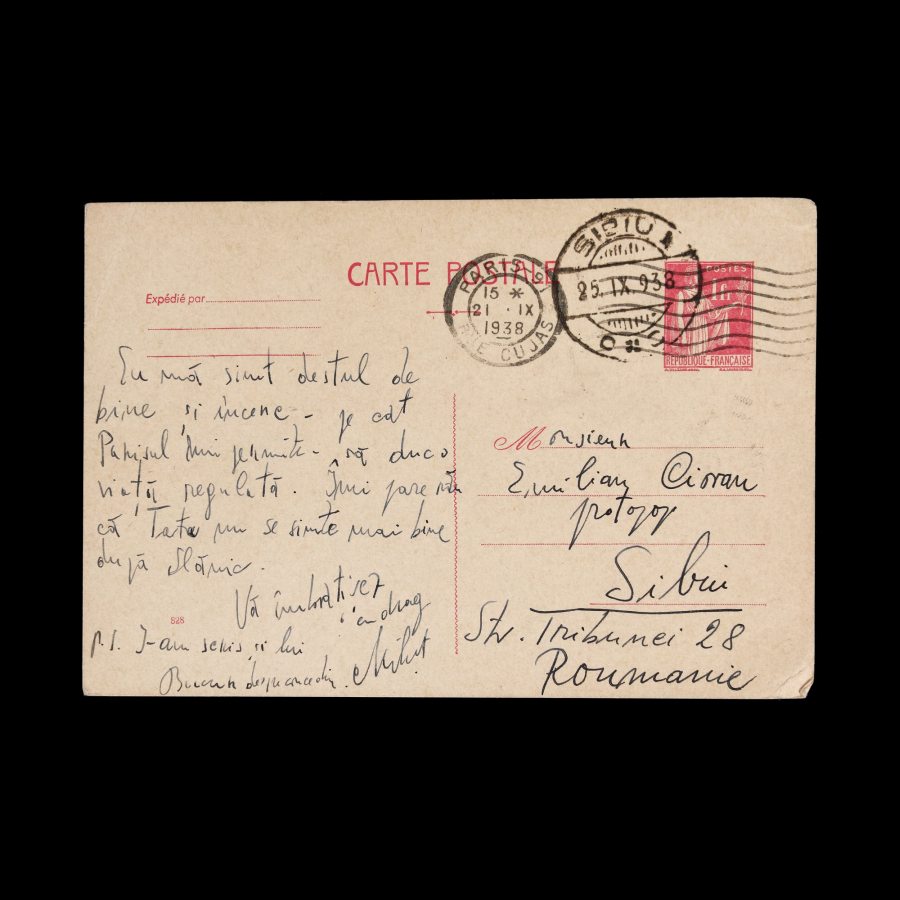 CARTE POSTALE
Expédié par
PARIS
15 *
21 · IX
1938
RUE CUJAS
SIBIU
25. IX 938
POSTES
1fr
REPUBLIQUE·FRANÇAISE
Eu mă simt destul de
bine și încerc - pe cât
Parisul îmi permite - să duc o
viață regulată. Îmi pare rău
că Tata nu se simte mai bine
după Slănic.
Vă îmbrățișez
cu drag
P.S. I-am scris și lui
Monsieur
Emilian Cioran
protopop
Sibiu
Str. Tribunei 28
Roumanie
828